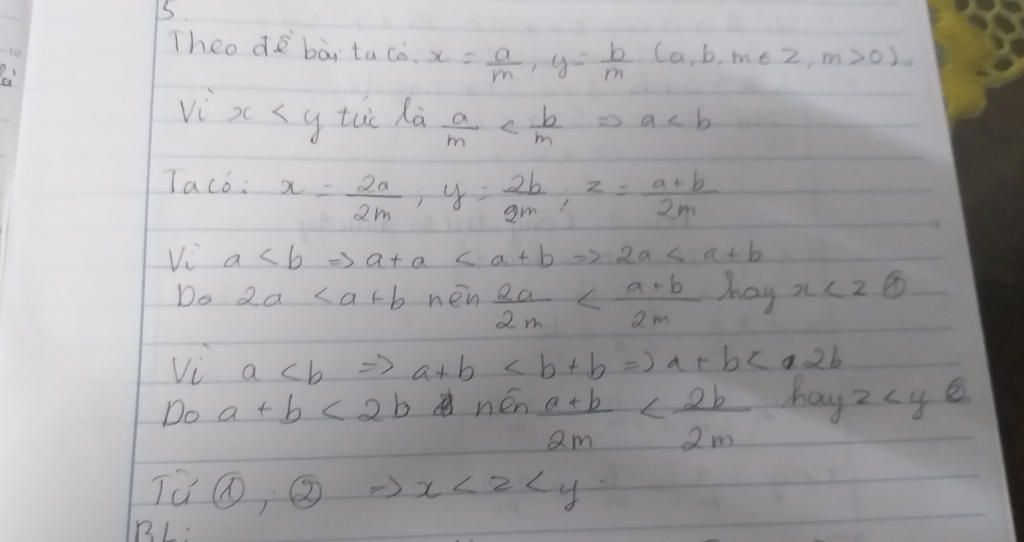 5.
Theo đề bài ta có. x = a/m ; y = b/m (a, b, m ∈ Z, m > 0).
Vì x < y tức là a/m < b/m => a < b
Ta có: x = 2a/2m , y = 2b/2m ; z = a+b/2m
Vì a < b => a + a < a + b => 2a < a + b
Do 2a < a + b nên 2a/2m < a+b/2m hay x < z ①
Vì a < b => a + b < b + b => a + b < 2b
Do a + b < 2b nên a+b/2m < 2b/2m hay z < y ②
Từ ①, ② => x < z < y